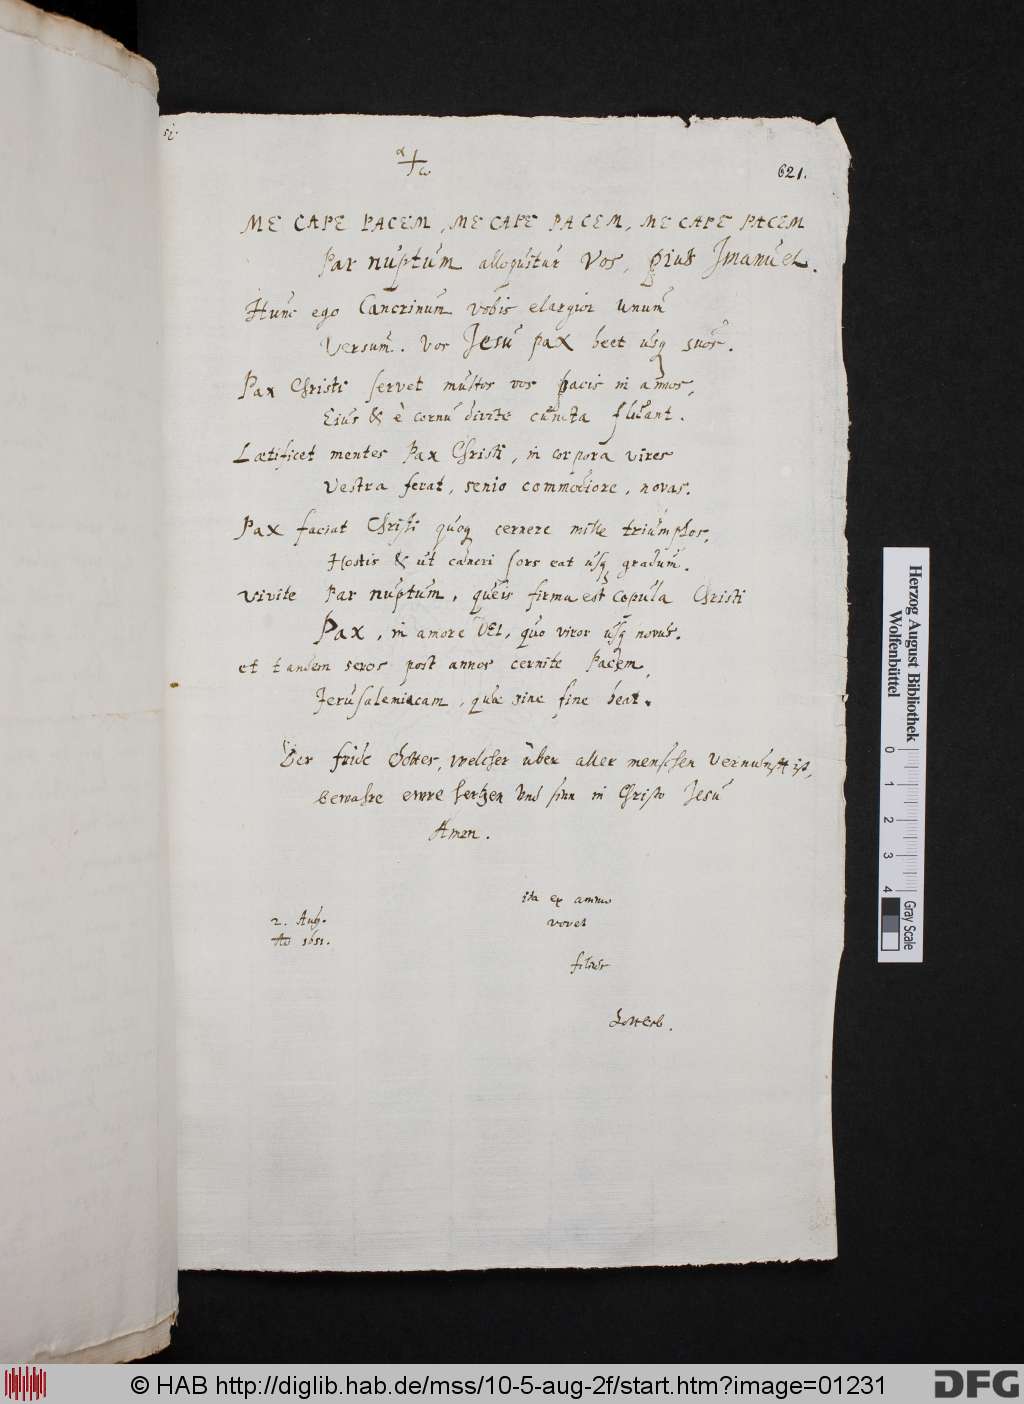 si.
α
ω
621.
ME CAPE PACEM, ME CAPE PACEM, ME CAPE PACEM
Par nuptum alloquitur Vos, pius Jmanuel.
Hunc ego Cancrinum vobis elargior unum
Versum. Vos Jesu pax beet usq suos.
Pax Christi servet multos vos pacis in annos,
Eius & è cornu divite cuncta fluant.
Lætificet mentes Pax Christi, in corpora vires
Vestra ferat, senio commodiore, novas.
Pax faciat Christi quoq cernere mille triumphos,
Hostis & ut cancri sors eat usq gradum.
Vivite Par nuptum, queis firma est copula Christi
Pax, in amore DEI, quo viror usq novus.
et tandem seros post annos cernite Pacem
Jerusalemiacam, quæ sine fine beat.
Der fride Gottes, welcher über aller menschen vernunfft ist,
Bewahre ewre hertzen und sinn in Christo Jesu
Amen.
ita ex animo
2. Aug.
vovet
Ao 1651.
filius